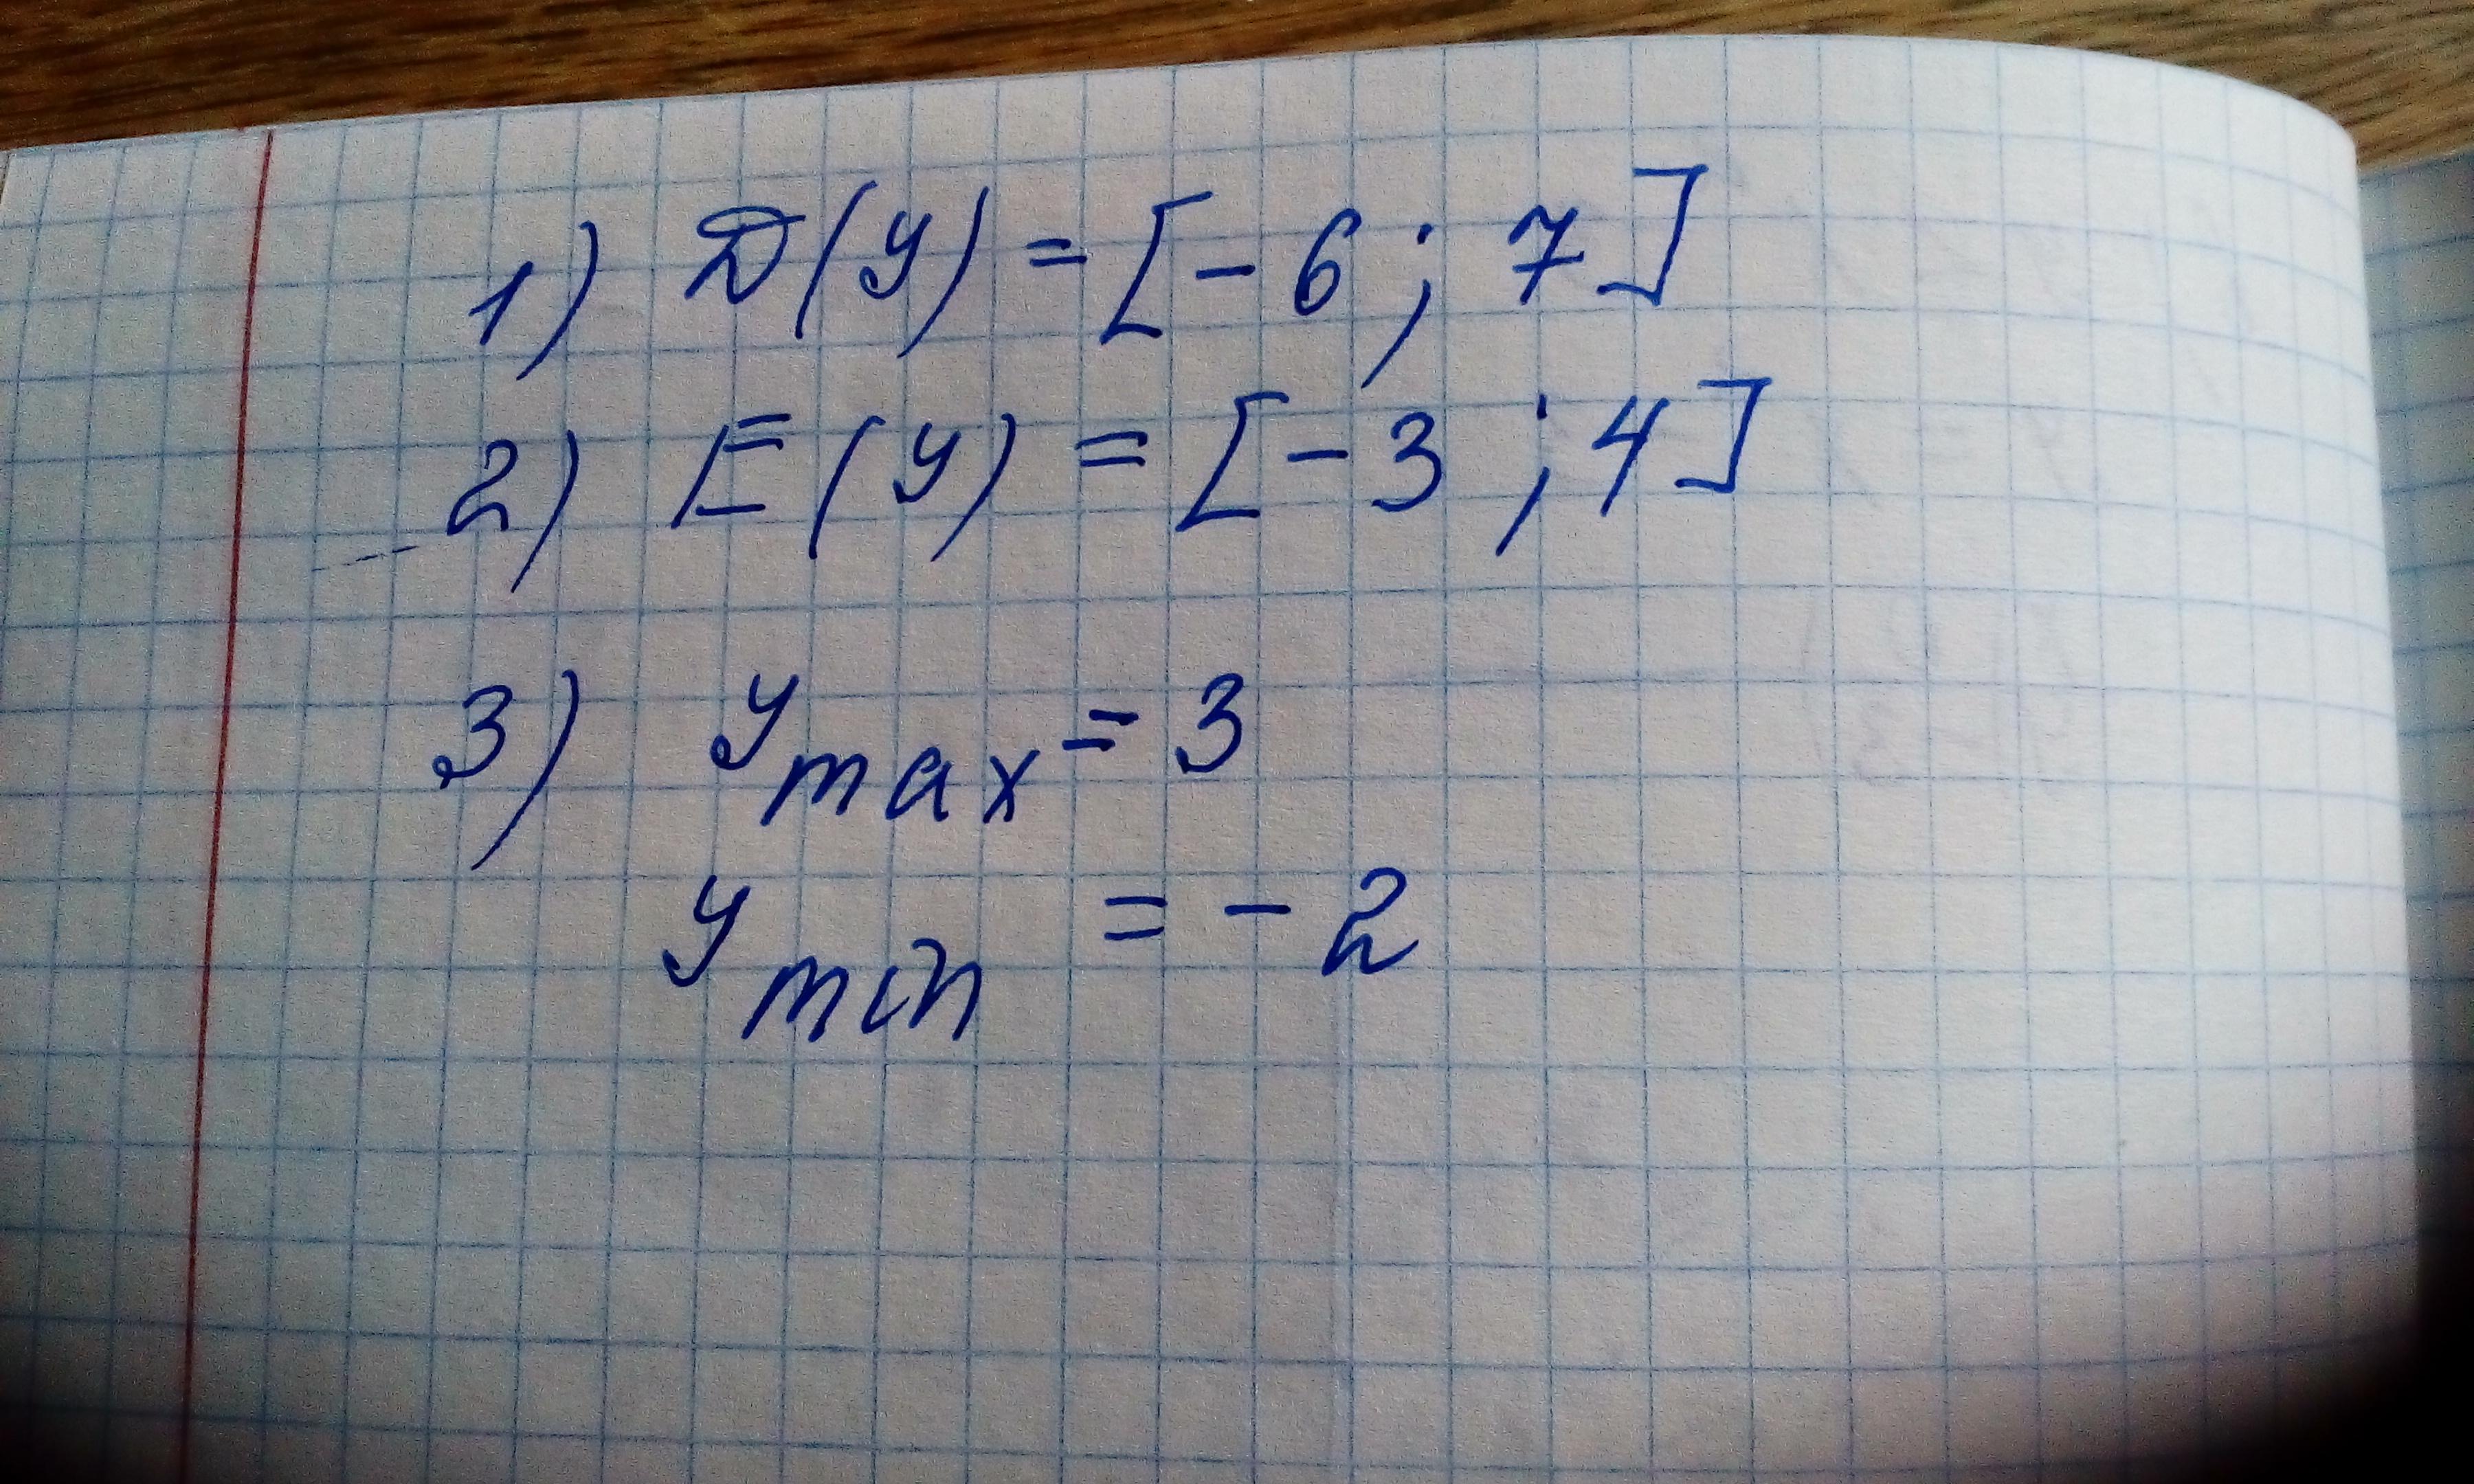 1) D(y) = [-6; 7]
2) E(y) = [-3; 4]
3) y max = 3
y min = -2